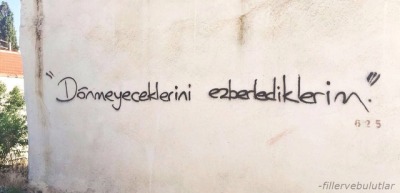 "Dönmeyeceklerini ezberlediklerim."
625
-fillervebulutlar